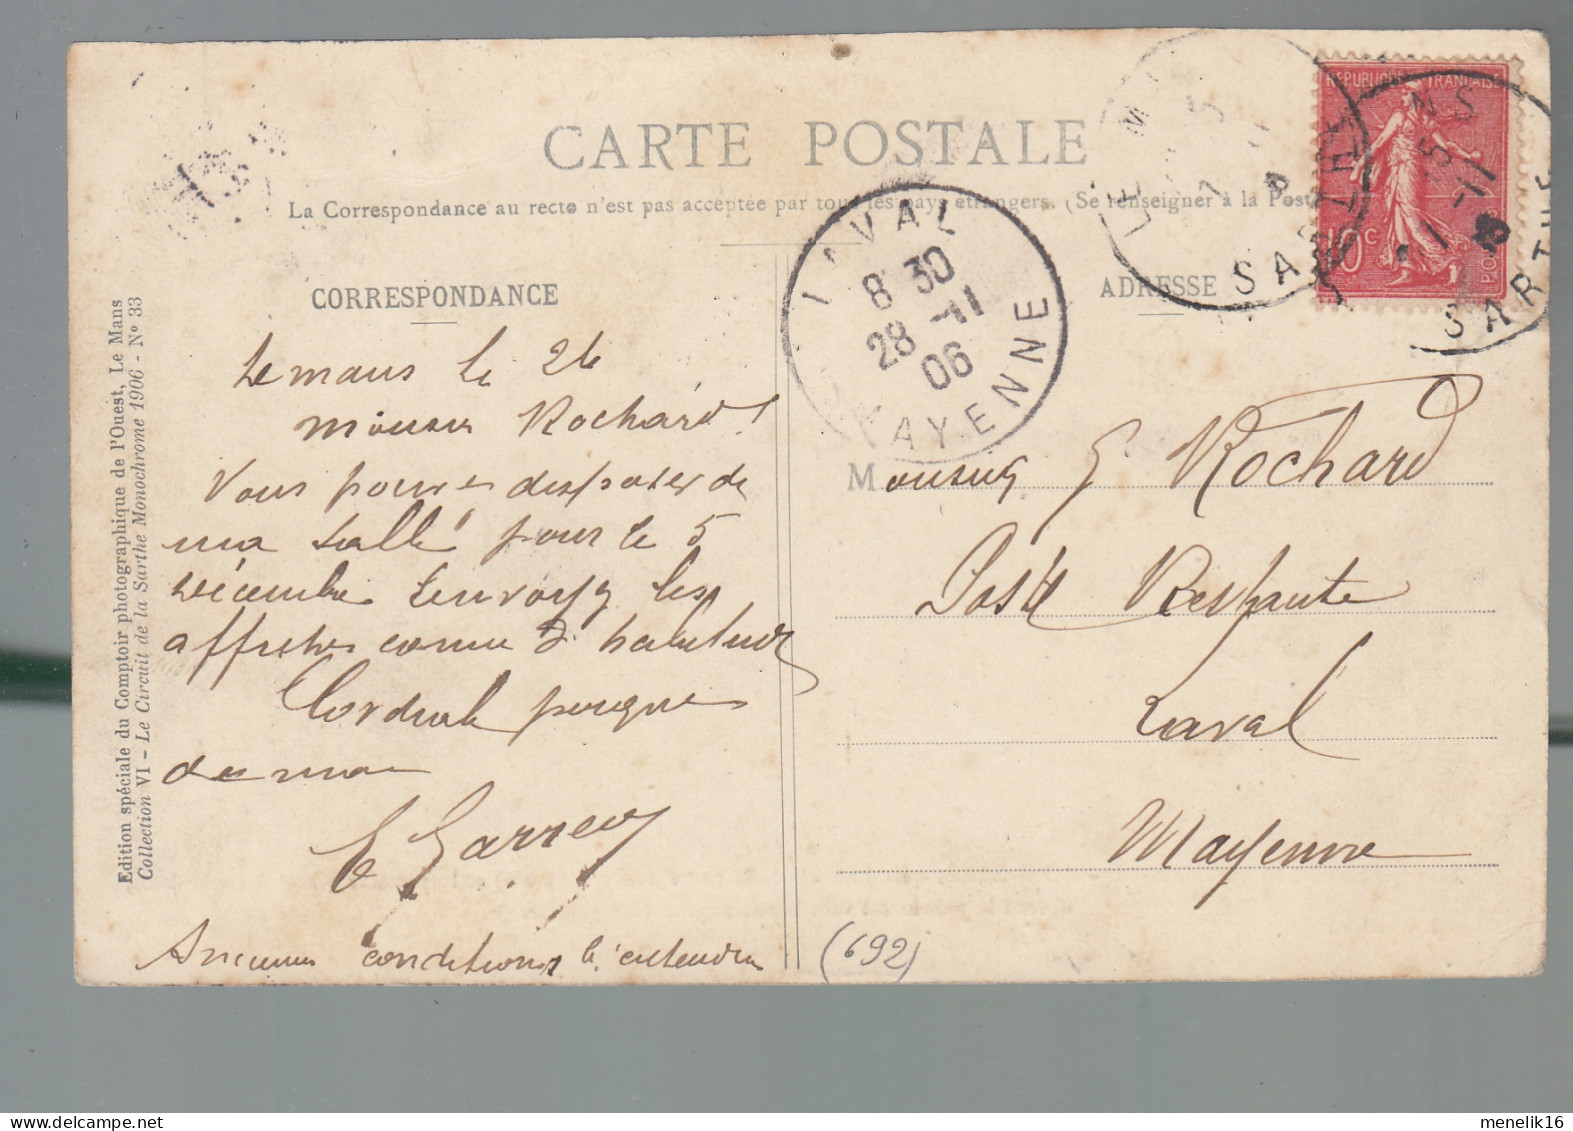 CARTE POSTALE
La Correspondance au recto n'est pas acceptée par tous les pays étrangers. (Se renseigner à la Poste
CORRESPONDANCE
ADRESSE
Edition spéciale du Comptoir photographique de l'Ouest, Le Mans
Collection VI - Le Circuit de la Sarthe Monochrome 1906 - N° 33
REPUBLIQUE FRANÇAISE
10c
POS
LE M
SARTHE
NS
SARTHE
LAVAL
8 30
28 -11
06
MAYENNE
Le mans le 26
monsieur Rochard
Vous pouvez disposer de
ma salle pour le 5
décembre Envoyez les
affiches comme d habitude
Cordiale poignee
de main
E Garreau
Anciennes conditions
Monsieur E Rochard
Poste Restante
Laval
Mayenne
(692)
menelik16